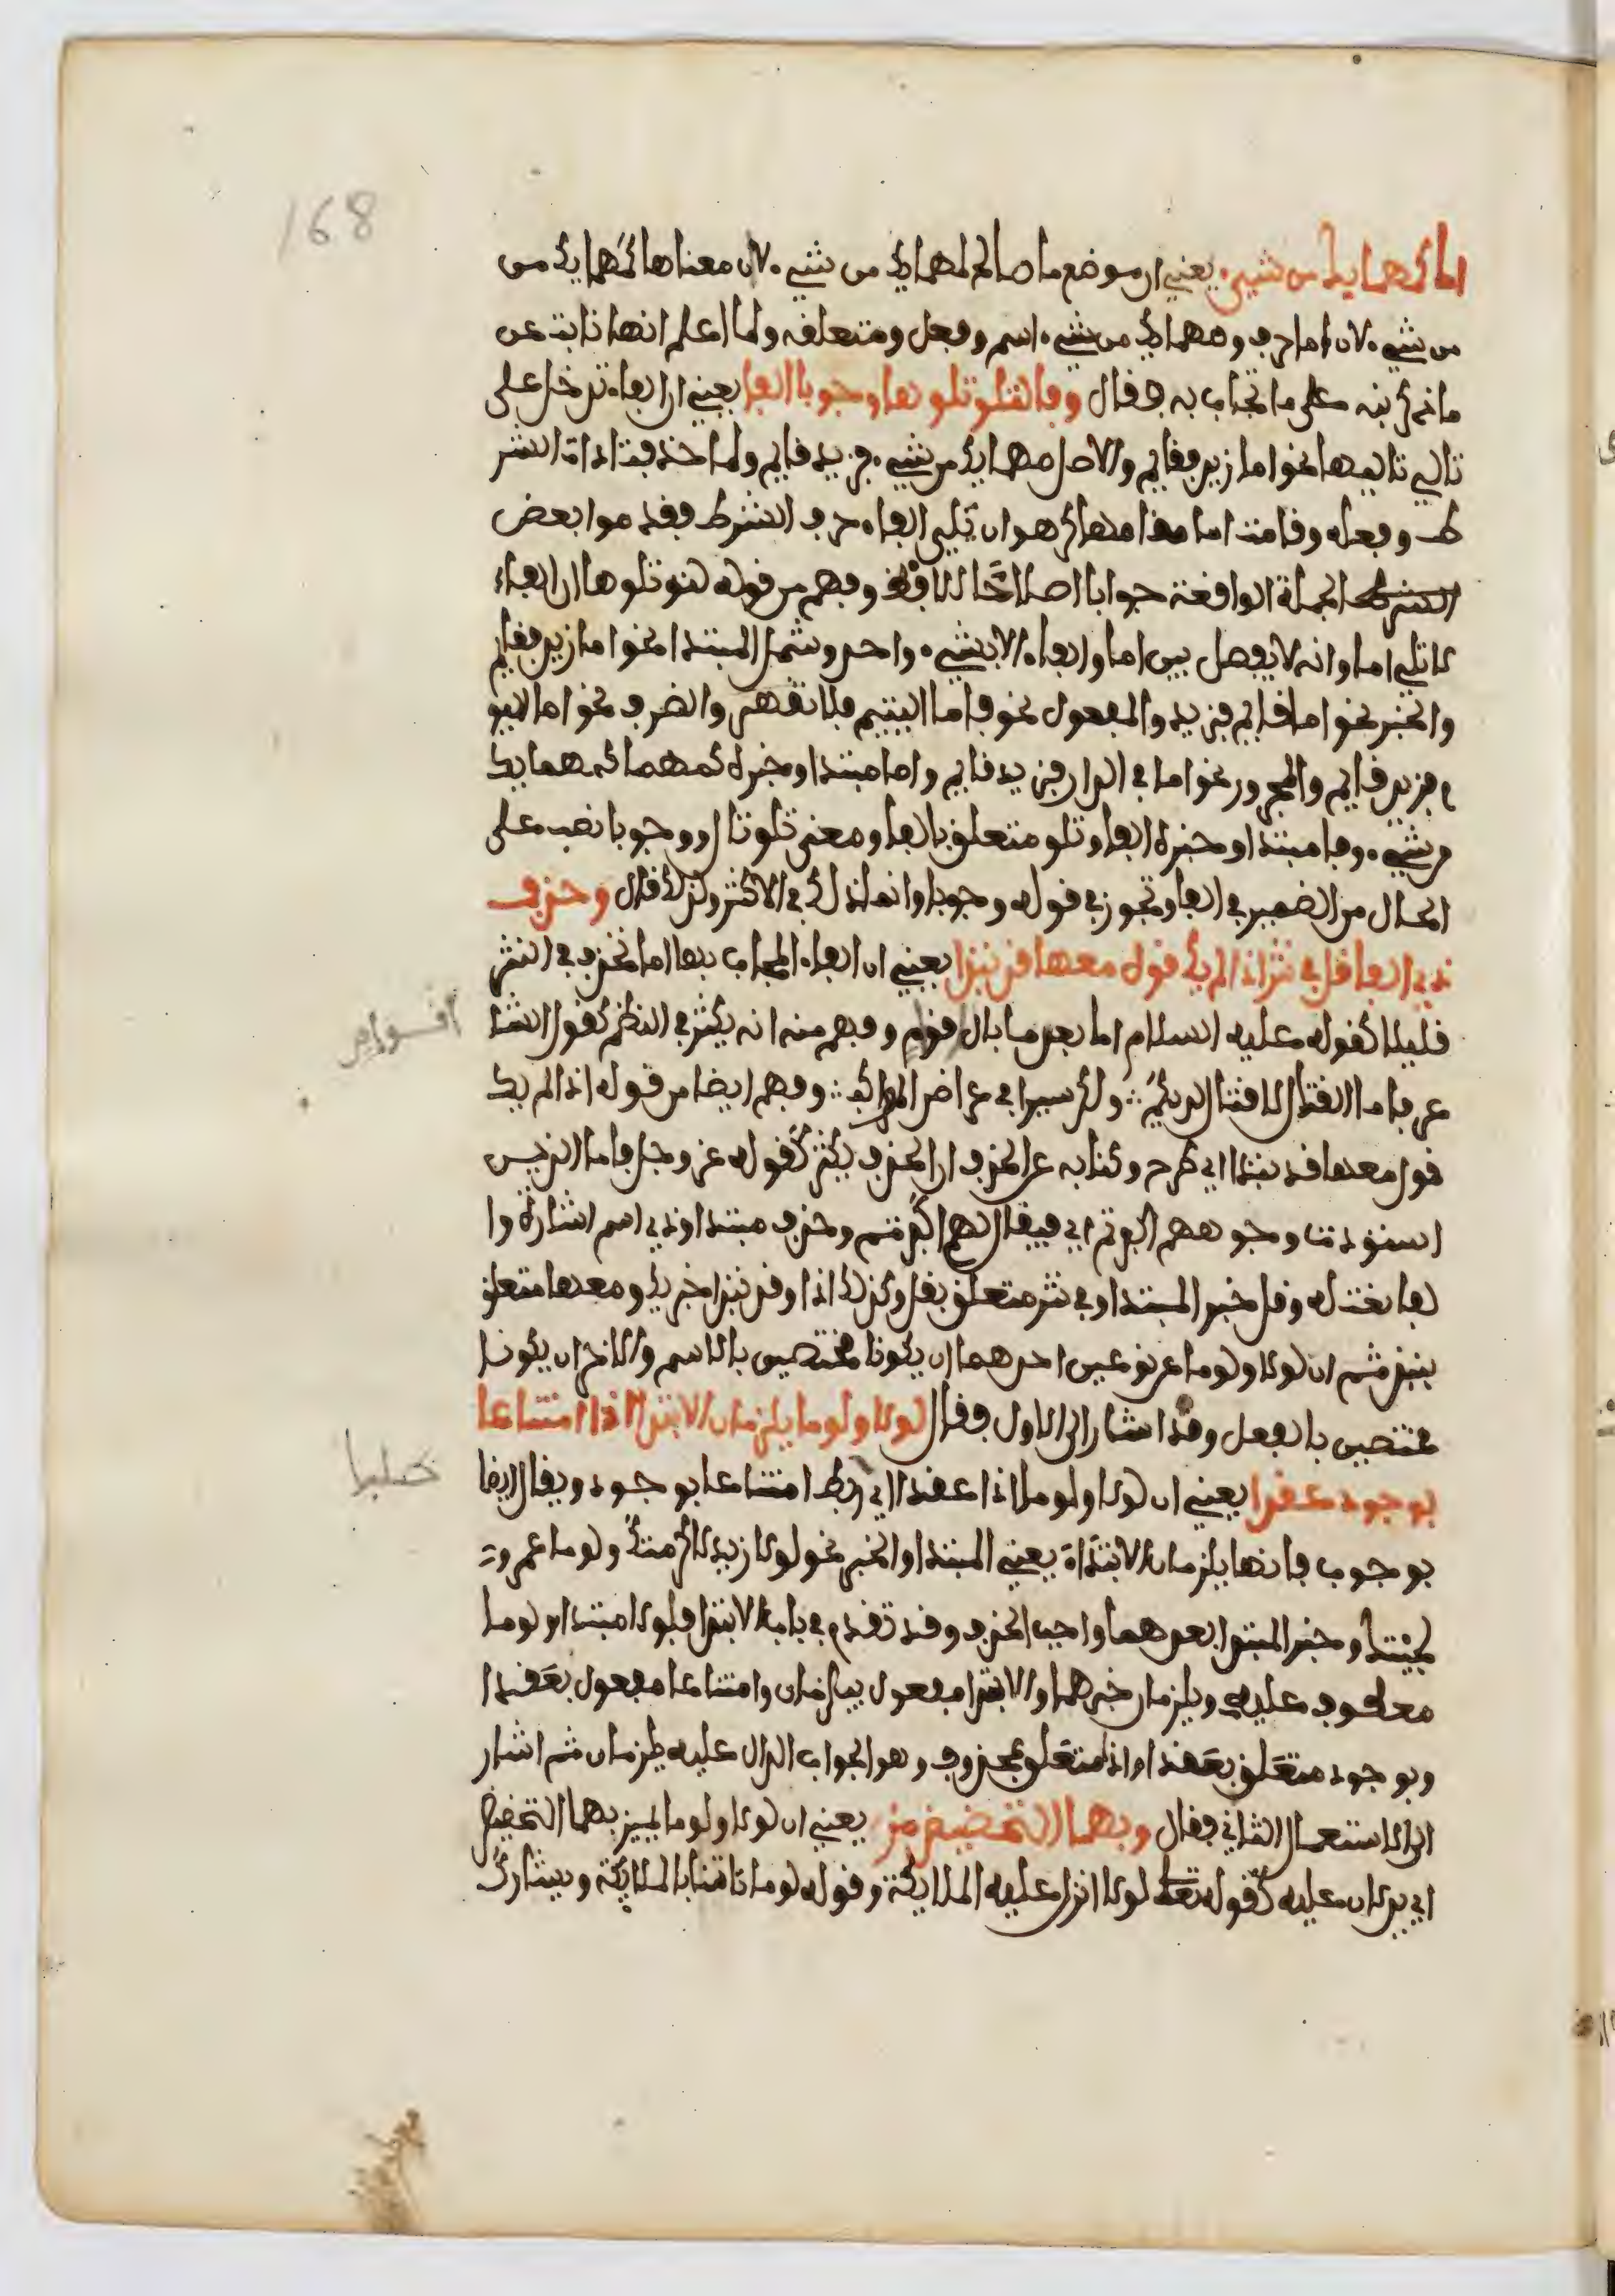 168
اما كمهما يك من شيء يعني ان موضع اما صالح لمهما يك من شيء لان معناها كمهما يك من
من شيء لان اما حرف ومهما يك من شيء اسم وفعل ومتعلفه ولما اعلم انها نابت عن
ما ذكر نبه على ما تجاب به ففال وفا لتلو تلوها وجوبا الفا يعني ان الفاء تدخل على
تالي تاليها نحو اما زيد ففايم والاصل مهما يك من شيء فزيد فايم ولما حذفت اداة الشر
ط وفعله وفامت اما مفامها كرهوا ان تلي الفاء حرف الشرط ففدموا بعض
الجملة الوافعة جوابا اصلاحا للفظ وفهم من فوله لتلو تلوها ان الفاء
لا تلي اما وانه لا يفصل بين اما والفاء الا بشيء واحد وشمل المبتدا نحو اما زيد ففايم
والخبر نحو اما فايم فزيد والمفعول نحو فاما اليتيم فلا تفهر والضرف نحو اما اليو
م فزيد فايم والمجرور نحو اما في الدار فزيد فايم واما مبتدا وخبره كمهما كمهما يك
من شيء وفا مبتدا وخبره الفا وتلو متعلف بالفا ومعنى تلو تال ووجوبا نصب على
الحال من الضمير في الفا وتجوز في فوله وجوبا وانما ذلك في الاكثر ولذلك فال وحذف
ذي الفا فل في نثر اذا لم يك فول معها فد نبذا يعني ان الفاء المجاب بها اما تحذف في النثر
فليلا كفوله عليه السلام اما بعد ما بال فوم وفهم منه انه يكثر في النظم كفول الشا
افوام
عر فاما الفتال لا فتال لديكم ولكن سيرا في عراض المواكب وفهم ايضا من فوله اذا لم يك
فول معها فد نبذا اي طرح وكنا به عن الحذف ان الحذف يكثر كفوله عز وجل فاما الذين
اسودت وجوههم اكفرتم اي فيفال لهم اكفرتم وحذف مبتدا وذي اسم اشارة وا
لفا نعت له وفل خبر المبتدا وفي نثر متعلف بفل وكذلك اذا وفد نبذا خبر يك ومعها متعلف
بنبذ ثم ان لولا ولوما على نوعين احدهما ان يكونا مختصين بالاسم والاخر ان يكونا
مختصين بالفعل وفد اشار الى الاول ففال لولا ولوما يلزمان الابتدا اذا امتناعا
بوجود عفدا يعني ان لولا ولوما اذا عفدا اي ربط امتناعا بوجود ويفال ايضا
بوجوب فانهما يلزمان الابتداء يعني المبتدا والخبر نحو لولا زيد لاكرمتك ولوما عمرو
لجيتك وخبر المبتدا بعدهما واجب الحذف وفد تفدم في باب الابتدا فلولا مبتدا ولوما
معطوف عليه ويلزمان خبرهما والابتدا مفعول بيلزمان وامتناعا مفعول بعفدا
وبوجود متعلف بعفدا واذا متعلف بمحذوف وهو الجواب الدال عليه يلزمان ثم اشار
الى الاستعمال الثاني ففال وبهما التحضيض مز يعني ان لولا ولوما يميز بهما التحضيض
اي يدلان عليه كفوله تعلى لولا انزل عليه الملايكة وفوله لوما تاتينا بالملايكة ويشارك